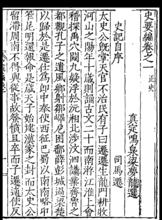 史要編卷之一 正史
真定鳴泉梁夢龍選
史記自序
司馬遷
太史公既掌天官不治民有子曰遷遷生龍門耕牧
河山之陽年十歲則誦古文二十而南游江淮上會
稽探禹穴闚九疑浮於沅湘北涉汶泗講業齊魯之
都觀孔子之遺風鄉射鄒嶧戹困鄱薛彭城過梁楚
以歸於是遷仕爲郎中奉使西征巴蜀以南南略邛
笮昆明還報命是歲天子始建漢家之封而太史公
留滯周南不得與從事故發憤且卒而子遷適使反